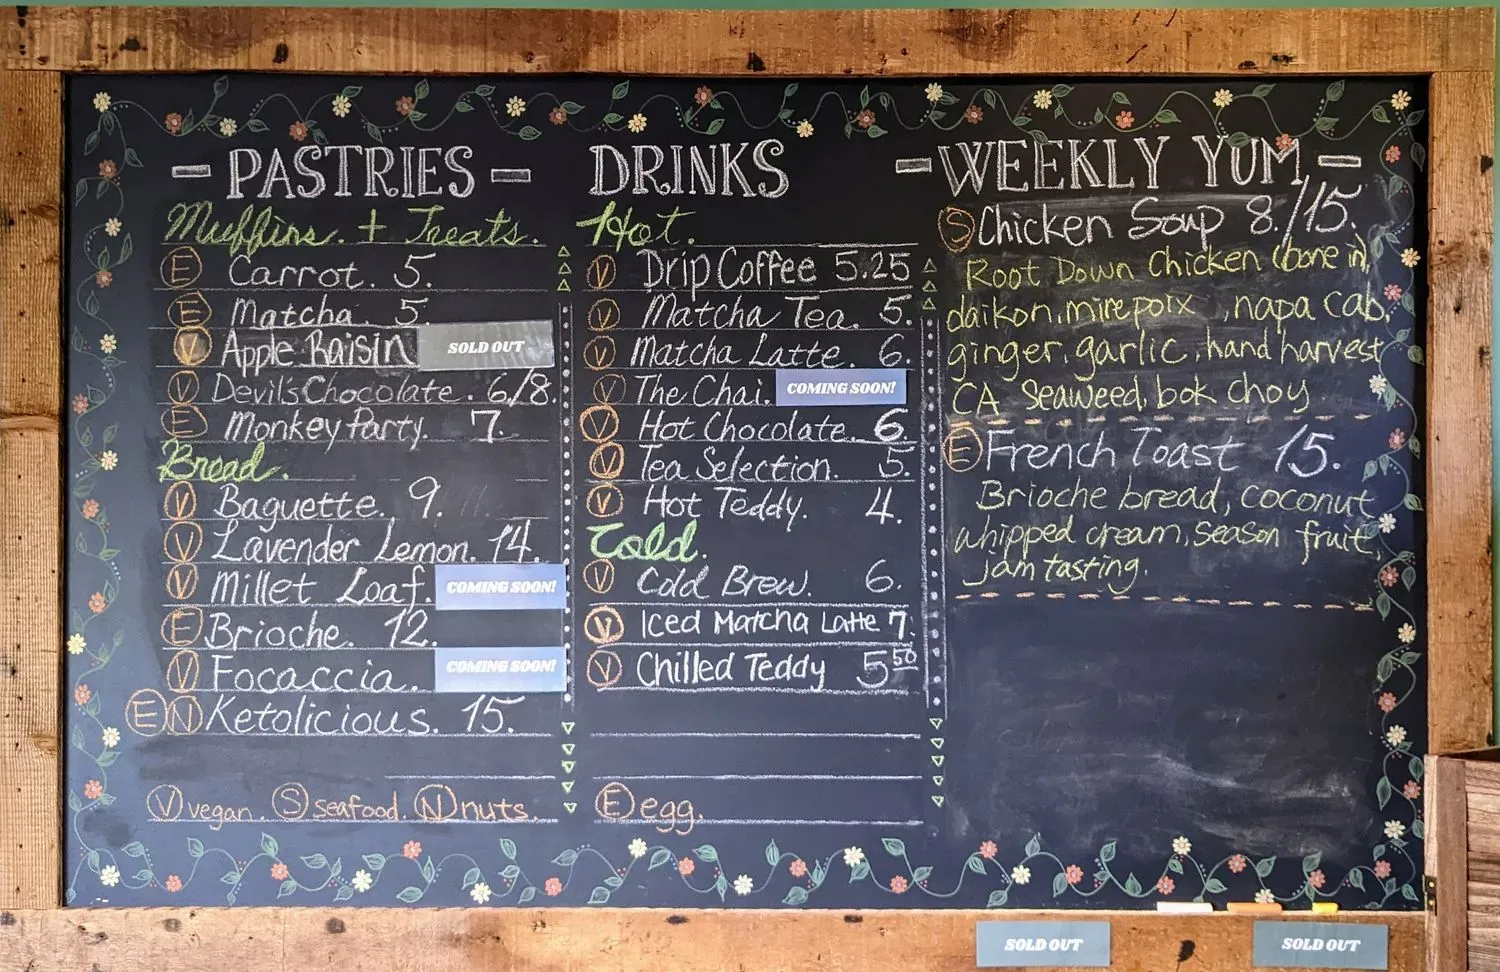 PASTRIES
Muffins. + Treats.
E Carrot. 5.
E Matcha. 5.
V Apple Raisin SOLD OUT
V Devil's Chocolate. 6/8.
E Monkey Party. 7.
Bread.
V Baguette. 9.
V Lavender Lemon. 14.
V Millet Loaf. COMING SOON!
E Brioche. 12.
V Focaccia. COMING SOON!
E N Ketolicious. 15.
V vegan. S seafood. N nuts.
DRINKS
Hot.
V Drip Coffee 5.25
V Matcha Tea. 5.
V Matcha Latte. 6.
V The Chai. COMING SOON!
V Hot Chocolate. 6.
V Tea Selection. 5.
V Hot Teddy. 4.
Cold.
V Cold Brew. 6.
V Iced Matcha Latte 7.
V Chilled Teddy 5 50
E egg.
- WEEKLY YUM -
S Chicken Soup 8./15.
Root Down Chicken (bone in),
daikon, mirepoix, napa cab,
ginger, garlic, hand harvest
CA Seaweed, bok choy
E French Toast 15.
Brioche bread, coconut
whipped cream, season fruit,
jam tasting.
SOLD OUT
SOLD OUT